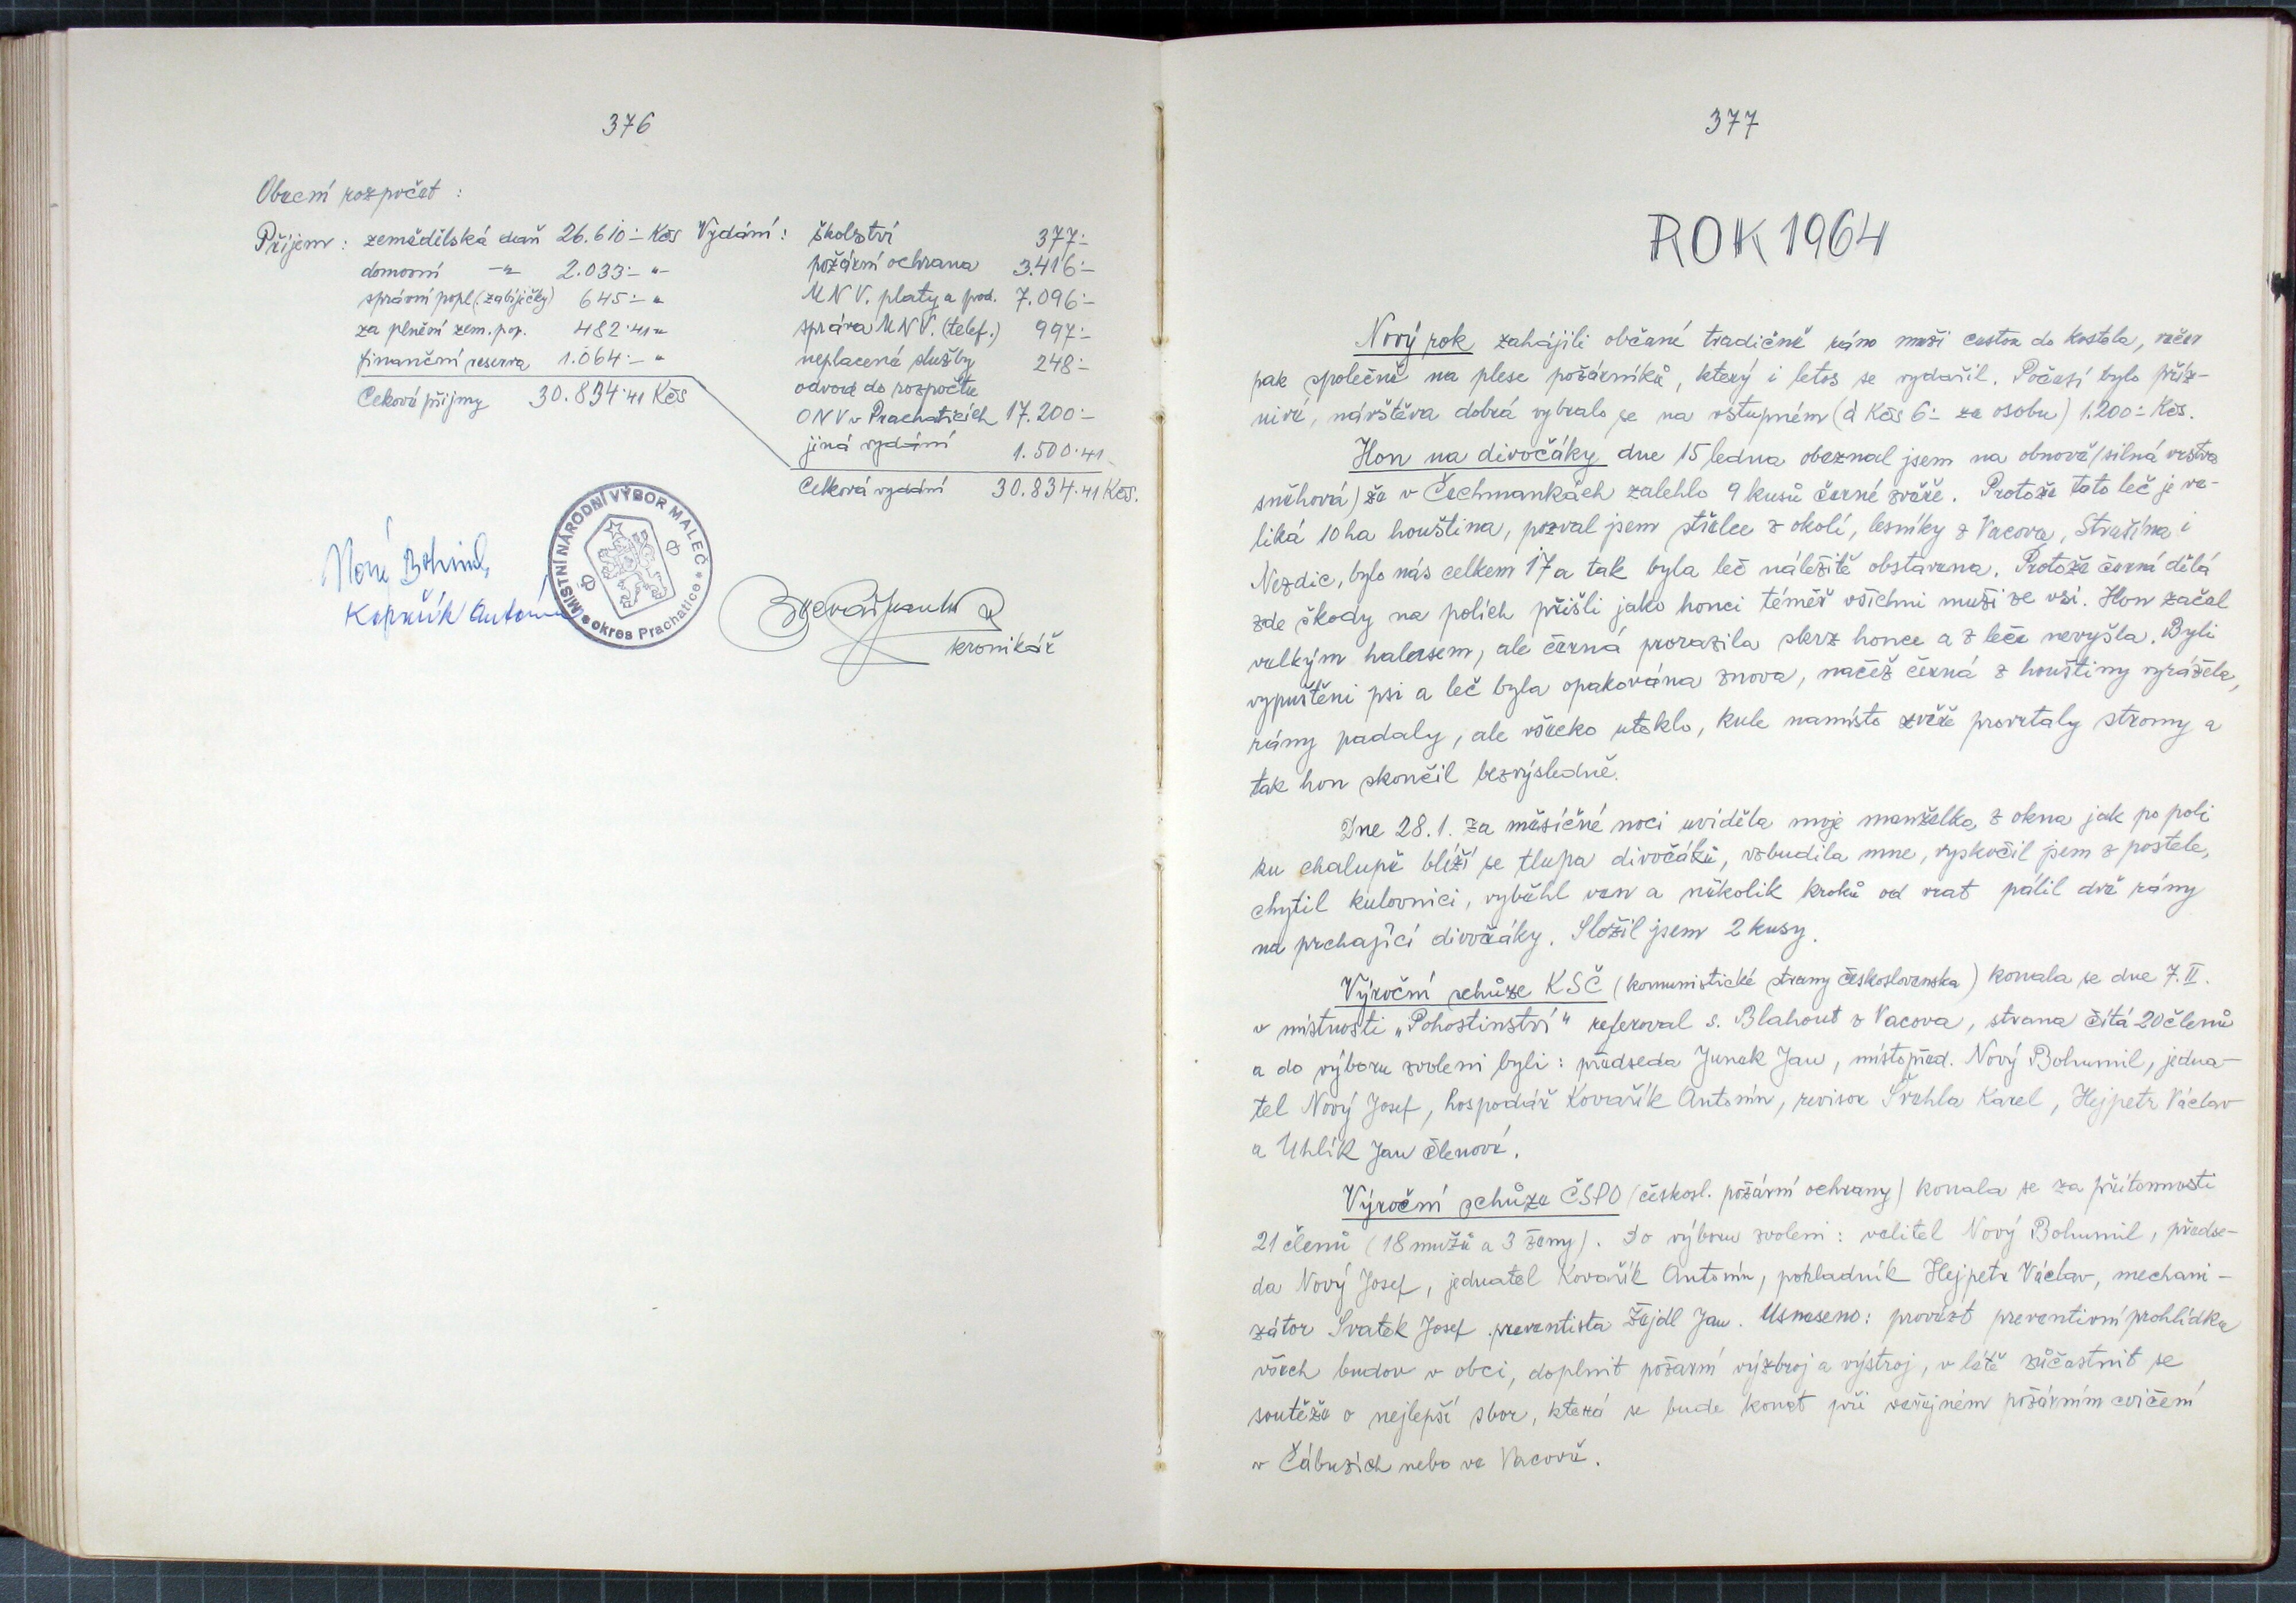 376
Obecní rozpočet :
Příjem : zemědělská daň 26.610·- Kčs Vydání : školství 377·-
domovní -"- 2.033·- "- požární ochrana 3.416·-
správní popl. (zabíječky) 645·- " MNV. platy a pod. 7.096·-
za plnění zem. pop. 482·41 " správa MNV. (telef.) 997·-
finanční reserva 1.064·- " neplacené služby 248·-
odvod do rozpočtu
Celkové příjmy 30.834·41 Kčs ONV v Prachaticích 17.200·-
jiná vydání 1.500·41
Celková vydání 30.834·41 Kčs.
MÍSTNÍ NÁRODNÍ VÝBOR MALEČ
okres Prachatice
Nový Bohumil,
Kovařík Antonín
kronikář
377
ROK 1964
Nový rok zahájili občané tradičně ráno mší cestou do kostela, večer
pak společně na plese požárníků, který i letos se vydařil. Počasí bylo příz-
nivé, návštěva dobrá vybralo se na vstupném (à Kčs 6·- za osobu) 1.200·- Kčs.
Hon na divočáky dne 15 ledna obeznal jsem na obnově (silná vrstva
sněhová) že v Čechmankách zalehlo 9 kusů černé zvěře. Protože tato leč je ve-
liká 10 ha houština, pozval jsem střelce z okolí, lesníky z Vacova, Strašína i
Nezdic, bylo nás celkem 17 a tak byla leč náležitě obstavena. Protože černá dělá
zde škody na polích přišli jako honci téměř všichni muži ze vsi. Hon začal
velkým halasem, ale černá prorazila skrz honce a z leče nevyšla. Byli
vypuštěni psi a leč byla opakována znova, načež černá z houštiny vyrážela,
rány padaly, ale všecko uteklo, kule namísto zvěře provrtaly stromy a
tak hon skončil bezvýsledně.
Dne 28.1. za měsíčné noci uviděla moje manželka z okna jak po poli
ku chalupě blíží se tlupa divočáků, vzbudila mne, vyskočil jsem z postele,
chytil kulovnici, vyběhl ven a několik kroků od vrat pálil dvě rány
na prchající divočáky. Složil jsem 2 kusy.
Výroční schůze KSČ (komunistické strany československa) konala se dne 7.II.
v místnosti „Pohostinství" referoval s. Blahout z Vacova, strana čítá 20 členů
a do výboru zvoleni byli : předseda Junek Jan, místopřed. Nový Bohumil, jedna-
tel Nový Josef, hospodář Kovařík Antonín, revisor Švehla Karel, Hejpetr Václav
a Uhlík Jan členové.
Výroční schůze ČSPO (českosl. požární ochrany) konala se za přítomnosti
21 členů (18 mužů a 3 ženy). Do výboru zvoleni : velitel Nový Bohumil, předse-
da Nový Josef, jednatel Kovařík Antonín, pokladník Hejpetr Václav, mechani-
zátor Svatek Josef preventista Žejdl Jan. Usneseno : provést preventivní prohlídku
všech budov v obci, doplnit požární výzbroj a výstroj, v létě zúčastnit se
soutěže o nejlepší sbor, která se bude konat při veřejném požárním cvičení
v Čábuzích nebo ve Vacově.